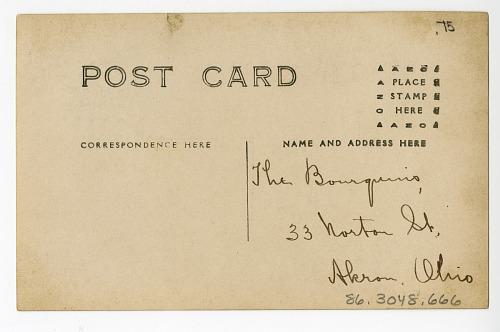 .75
POST CARD
AZO
PLACE
STAMP
HERE
AZO
CORRESPONDENCE HERE
NAME AND ADDRESS HERE
The Bourquins,
33 Norton St,
Akron, Ohio
86.3048.666